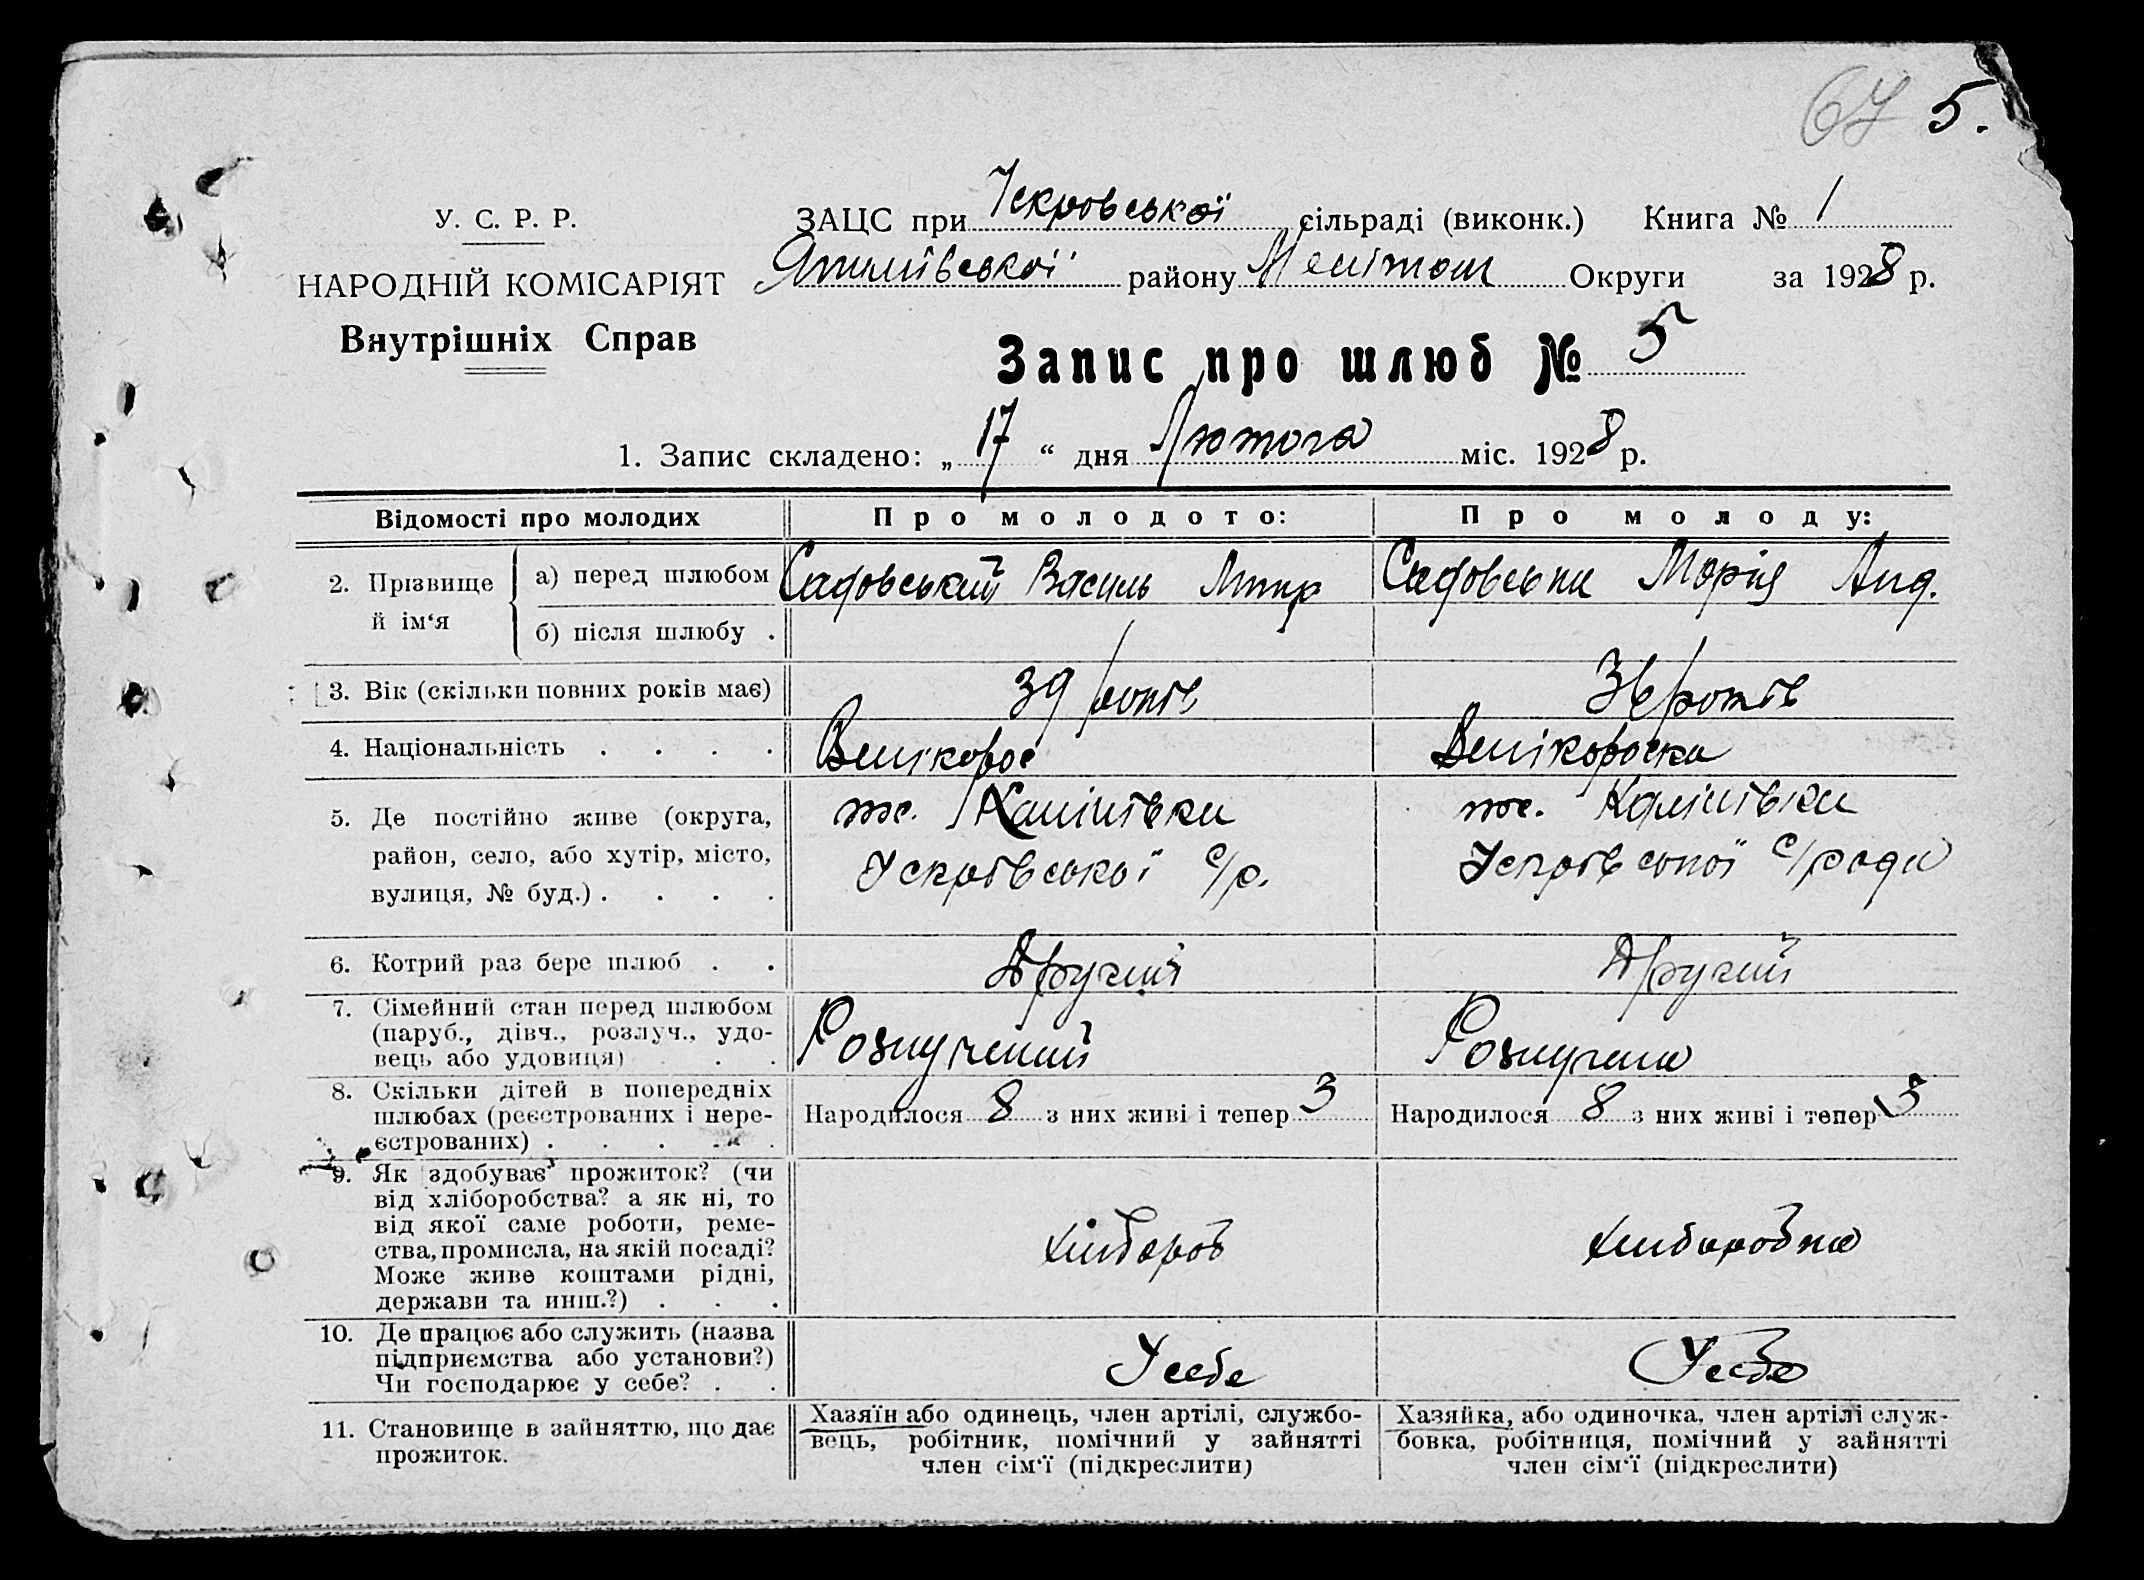 67 5.
У. С. Р. Р.
НАРОДНІЙ КОМІСАРІЯТ
Внутрішніх Справ
ЗАЦС при Іскровської сільраді (виконк.) Книга № 1
району Меліт Округи за 1928 р.
Запис про шлюб № 5
1. Запис складено: „ 17 “ дня Лютого міс. 1928 р.
Відомості про молодих
Про молодого:
Про молоду:
2. Прізвище й ім‘я
а) перед шлюбом
Садовський Василь Митр
Садовська Марія Анд.
б) після шлюбу .
3. Вік (скільки повних років має)
39 років
36 років
4. Національність . . . .
Велікорос
Велікороска
5. Де постійно живе (округа,
район, село, або хутір, місто,
вулиця, № буд.) . . . .
с. Калінівки
Іскрівської с/р.
с. Калінівки
Іскрівської с/ради
6. Котрий раз бере шлюб . .
Другий
Другий
7. Сімейний стан перед шлюбом
(паруб., дівч., розлуч., удо-
вець або удовиця) . .
Розлучений
Розлучена
8. Скільки дітей в попередніх
шлюбах (реєстрованих і нере-
єстрованих) . . . . .
Народилося 8 з них живі і тепер 3
Народилося 8 з них живі і тепер 3
9. Як здобуває прожиток? (чи
від хліборобства? а як ні, то
від якої саме роботи, реме-
ства, промисла, на якій посаді?
Може живе коштами рідні,
держави та инш.?) . . .
хлібороб
хліборобка
10. Де працює або служить (назва
підприємства або установи?)
Чи господарює у себе? . .
У себе
У себе
11. Становище в зайняттю, що дає
прожиток.
Хазяїн або одинець, член артілі, службо-
вець, робітник, помічний у зайнятті
член сім‘ї (підкреслити)
Хазяйка, або одиночка, член артілі служ-
бовка, робітниця, помічний у зайнятті
член сім‘ї (підкреслити)